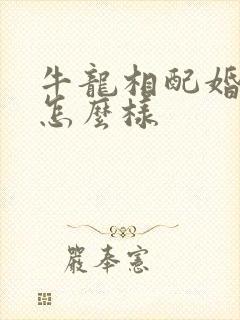 牛龍相配婚
怎麼樣
嚴奉憲